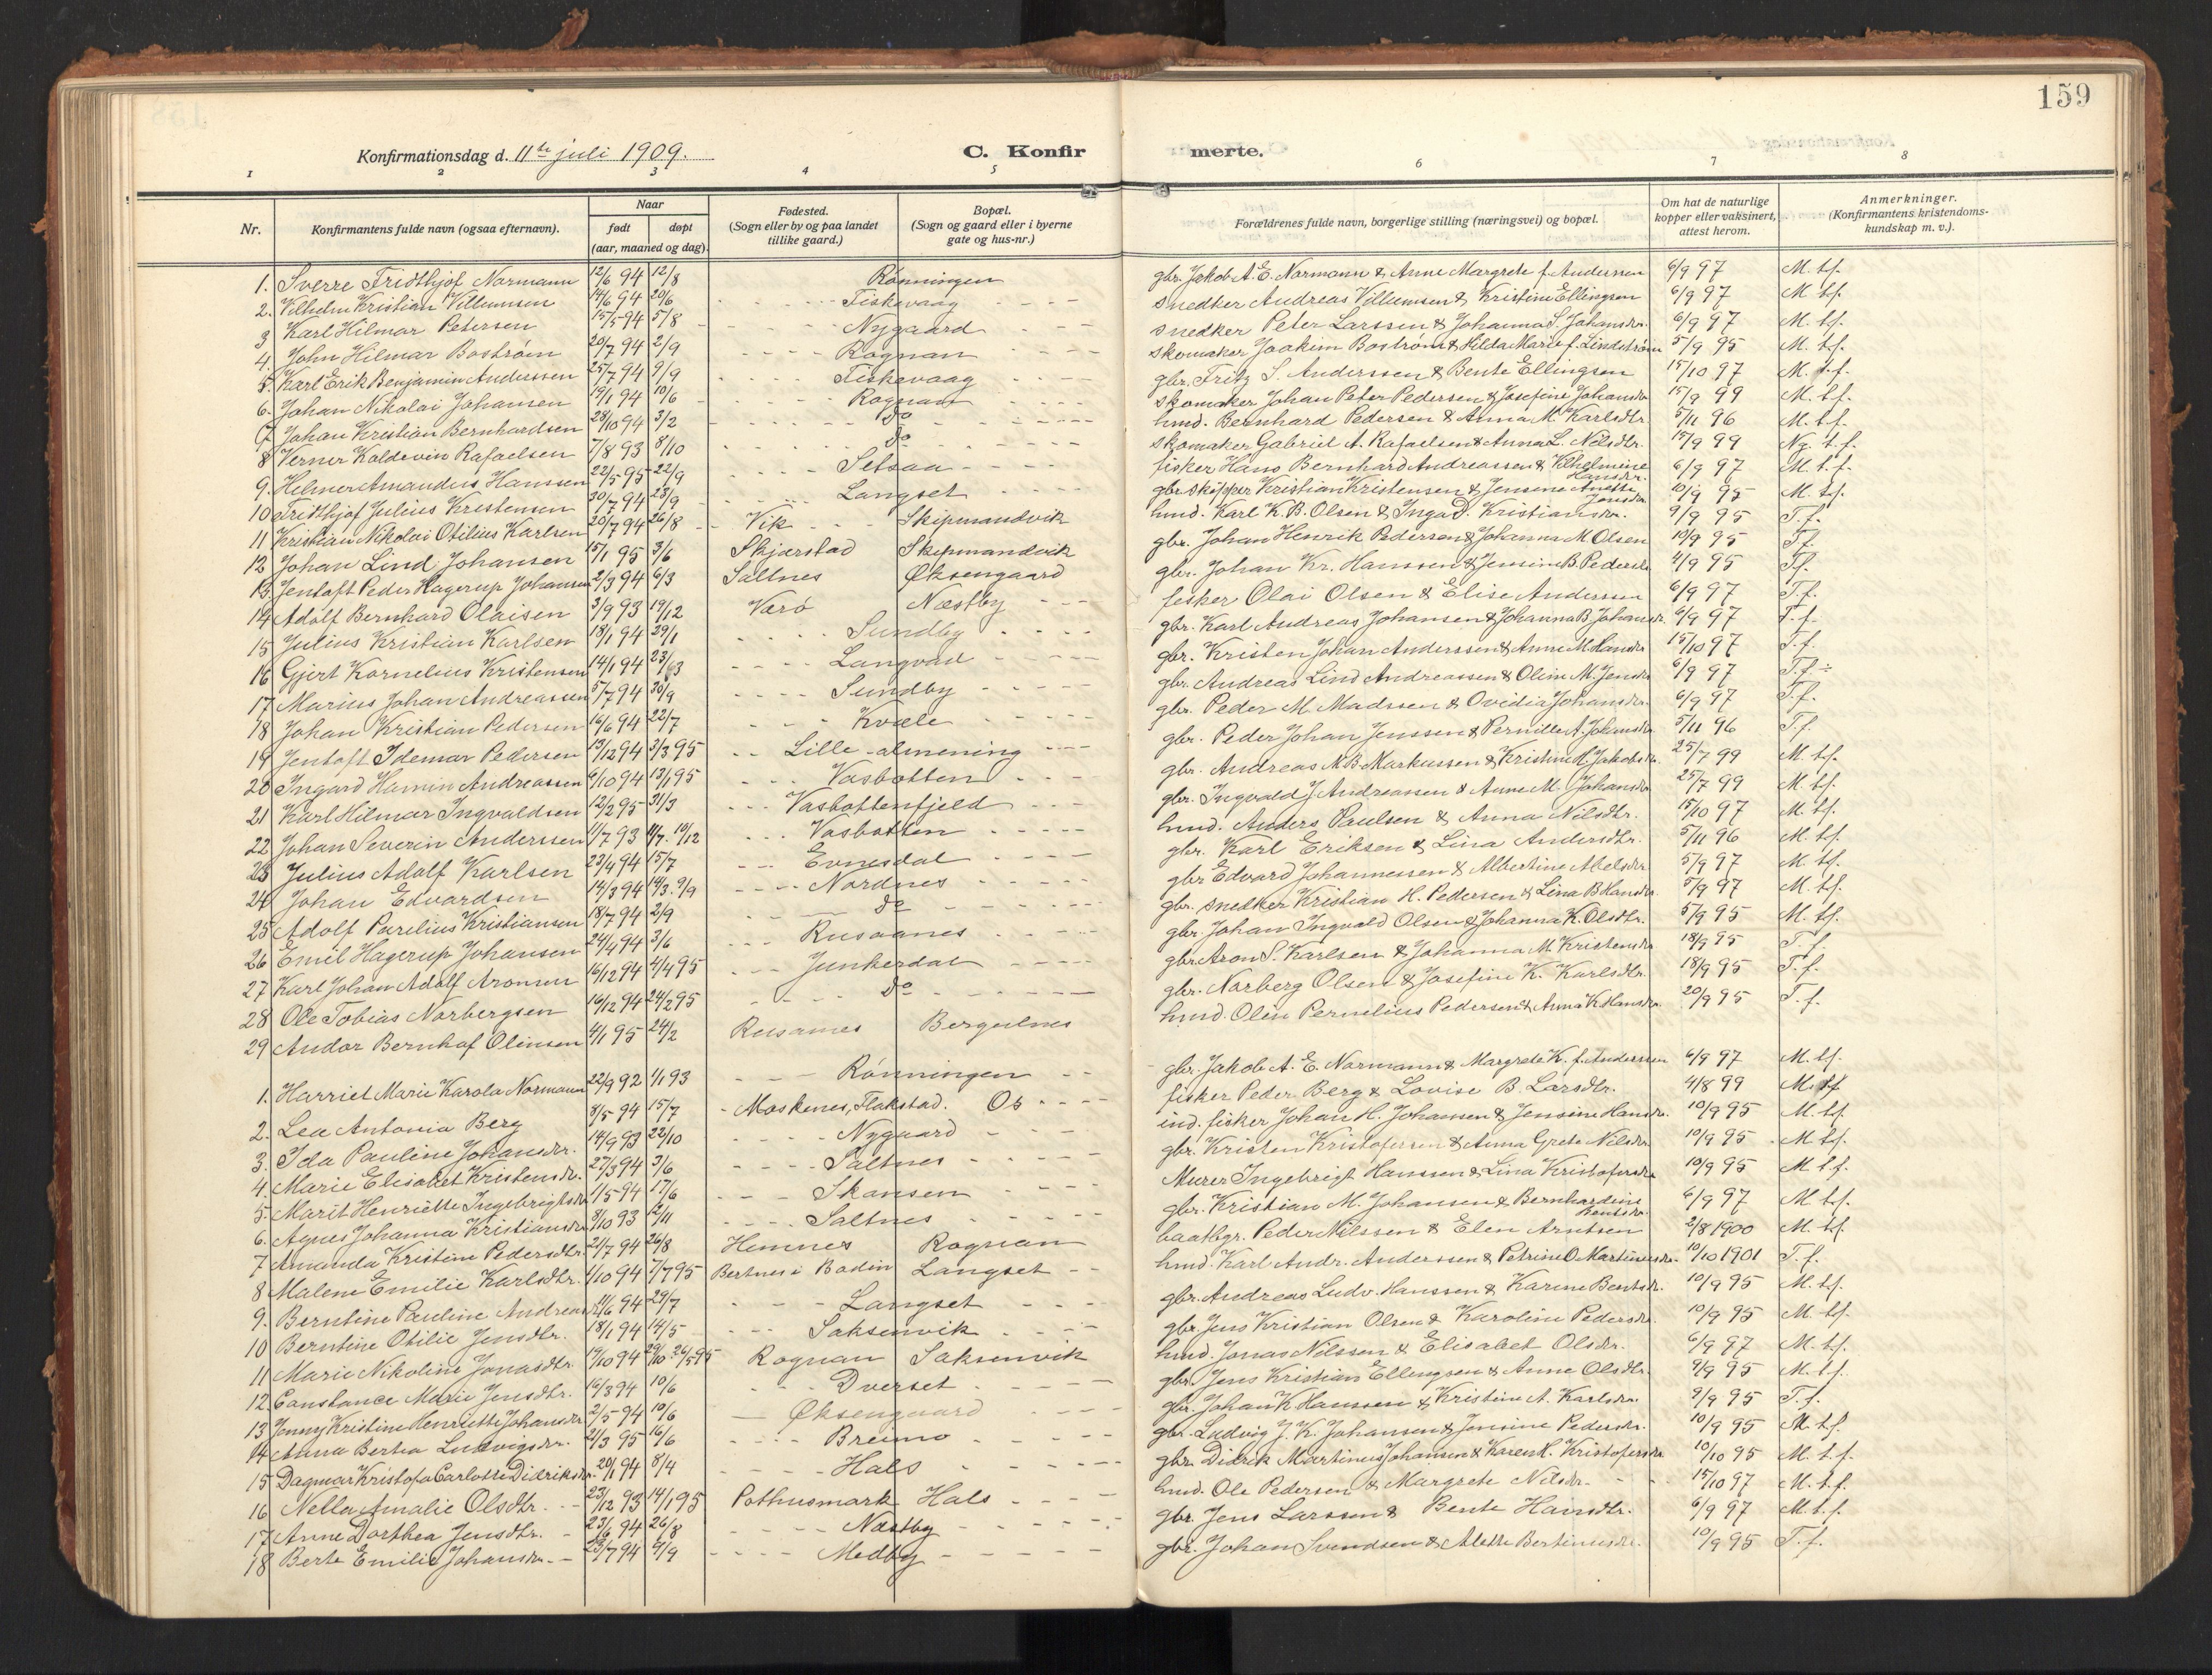 159
Konfirmationsdag d. 11te juli 1909. C. Konfir merte.
1 2 3 4 5 6 7 8
Nr. Konfirmantens fulde navn (ogsaa efternavn). Naar født døpt (aar, maaned og dag). Fødested. (Sogn eller by og paa landet tillike gaard.) Bopæl. (Sogn og gaard eller i byerne gate og hus-nr.) Forældrenes fulde navn, borgerlige stilling (næringsvei) og bopæl. Om hat de naturlige kopper eller vaksinert, attest herom. Anmerkninger. (Konfirmantens kristendomskundskap m. v.).
1. Sverre Fridthjof Normann 12/6 94 12/8 Rønningen gbr. Jakob A. E. Normann & Anne Margrete f. Andersen 6/9 97 M. tf.
2. Vilhelm Kristian Villumsen 14/6 94 20/6 Fiskevaag snedker Andreas Villumsen & Kristine Ellingsen 6/9 97 M. tf.
3 Karl Hilmar Petersen 15/5 94 5/8 Nygaard snedker Peter Larssen & Johanna S. Johansdr. 6/9 97 M. tf.
4. John Hilmar Bostrøm 20/7 94 2/9 Rognan skomaker Joakim Bostrøm & Hilda Marie f. Lindstrøm 5/9 95 M. tf.
5. Karl Erik Benjamin Anderssen 25/7 94 9/9 Fiskevaag gbr. Fritz S. Anderssen & Bente Ellingsen 15/10 97 M. t.f.
6. Johan Nikolai Johansen 19/1 94 10/6 Rognan skomaker Johan Peter Pedersen & Josefine Johansdr 15/9 99 M. t.f.
7 Johan Kristian Bernhardsen 28/10 94 3/2 do hmd. Bernhard Pedersen & Anna M. Karlsdtr. 5/11 96 M. t.f.
8 Verner Koldevin Rafaelsen 7/8 93 8/10 do skomaker Gabriel A. Rafaelsen & Anna L. Nilsdtr. 15/9 99 Ng. t.f.
9. Helmer Amandus Hanssen 22/5 95 22/9 Setsaa fisker Hans Bernhard Andreassen & Vilhelmine Hansdr. 6/9 97 M. t.f.
10 Fridthjof Julius Kristensen 30/7 94 23/9 Langset gbr. skipper Kristian Kristensen & Jensine Anette Jonsdr 10/9 95 M. t.f.
11 Kristian Nikolai Otilius Karlsen 20/7 94 26/8 Vik Skipmandvik hmd. Karl K. B. Olsen & Inga D. Kristiansdr. 9/9 95 T.f.
12 Johan Lind Johansen 15/1 95 3/6 Skjærstad Skipmandvik gbr. Johan Henrik Pedersen & Johanna M Olsen 10/9 95 T.f.
13. Jentoft Peder Hagerup Johansen 2/3 94 6/3 Saltnes Øksengaard gbr. Johan Kr. Hanssen & Jensine B. Pedersdr 4/9 95 T.f.
14 Adolf Bernhard Olaisen 3/9 93 19/12 Værø Næstby fisker Olai Olsen & Elise Andersen 6/9 97 T.f.
15 Julius Kristian Karlsen 18/1 94 29/1 Sundby gbr. Karl Andreas Johansen & Johanna B Johansdr. 6/9 97 T.f.
16 Gjert Kornelius Kristensen 14/1 94 23/3 Langvad gbr. Kristen Johan Anderssen & Anne M. Hansdr 15/10 97 T.f.
17 Marius Johan Andreassen 5/7 94 30/9 Sundby gbr. Andreas Lind Andreassen & Oline M. Jensdr 6/9 97 T.f. ÷
18 Johan Kristian Pedersen 16/6 94 22/7 Kvæle gbr. Peder M. Madssen & Ovidia Johansdr. 6/9 97 T.f.
19 Jentoft Idemar Pedersen 13/12 94 3/3 95 Lille-almening gbr. Peder Johan Jenssen & Pernille A. Johansdr 5/11 96 T.f.
20 Ingard Hamin Andreassen 6/10 94 13/1 95 Vasbotten gbr. Andreas N. B. Markussen & Kristine M. Jakobsdr. 25/7 99 M. tf.
21 Karl Hilmar Ingvaldsen 12/2 95 31/3 Vasbottenfjeld gbr. Ingvald J Andreassen & Anne M. Johansdr 25/7 99 M. tf.
22 Johan Severin Anderssen 11/7 93 11/7. 10/12 Vasbotten hmd. Anders Paulsen & Anna Nilsdtr. 15/10 97 M. tf.
23 Julius Adolf Karlsen 23/4 94 15/7 Evnesdal gbr. Karl Eriksen & Lina Andersdtr. 5/11 96 M. tf.
24 Johan Edvardsen 14/3 94 14/3. 9/9 Nordnes gbr Edvard Johannessen & Albertine Abelsdr 5/9 97 M. tf.
25 Adolf Parelius Kristiansen 18/7 94 2/9 do gbr. snedker Kristian H. Pedersen & Lina B Hansdr. 5/9 97 M. t.f.
26 Emil Hagerup Johansen 24/4 94 3/6 Rusaanes gbr. Johan Ingvald Olsen & Johanna K. Olsdtr. 5/9 95 M. tf.
27 Karl Johan Adolf Aronsen 16/12 94 4/4 95 Junkerdal gbr Aron S. Karlsen & Johanna M. Kristensdr 18/9 95 T.f.
28 Ole Tobias Norbergsen 16/12 94 24/2 95 do gbr. Norberg Olsen & Josefine K. Karlsdtr. 18/9 95 T.f.
29 Andor Bernhof Olinsen 4/1 95 24/2 Rusaanes Bergulnes hmd. Olin Pernelius Pedersen & Anna K. Hansdr. 20/9 95 T.f.
1. Harriet Marie Karola Normann 22/9 92 1/1 93 Rønningen gbr. Jakob A. E. Normann & Margrete K. f. Anderssen 6/9 97 M. tf.
2. Lea Antonia Berg 3/5 94 15/7 Moskenes, Flakstad. Os fisker Peder Berg & Lovise B. Larsdtr. 4/8 99 M. tf
3. Ida Pauline Johansdr. 14/9 93 22/10 Nygaard ind. fisker Johan H. Johansen & Jensine Hansdr. 10/9 95 M. t.f.
4. Marie Elisabet Kristensdr. 27/3 94 3/6 Saltnes gbr. Kristen Kristofersen & Anna Grete Nilsdr. 10/9 95 M tf.
5. Marit Henriette Ingebrigtsdr 1/5 94 17/6 Skansen Murer Ingebrigt Hanssen & Lina Kristofersdr 10/9 95 M. t.f.
6. Agnes Johanna Kristiansdr 8/10 93 12/11 Saltnes gbr. Kristian M. Johansen & Bernhardine Bentsdr. 6/9 97 M tf.
7 Amanda Kristine Pedersdtr. 21/7 94 26/8 Hemnes Rognan baatbgr. Peder Nilssen & Elen Arntsen 2/8 1900 M. tf.
8 Malene Emilie Karlsdtr. 1/10 94 7/7 95 Bertnes i Bodin Langset hmd. Karl Andr. Anderssen & Petrine O Martinusdr. 10/10 1901 T.f.
9. Berntine Pauline Andreasdr 11/6 94 29/7 Langset gbr. Andreas Ludv. Hanssen & Karine Bentsdr. 10/9 95 M. tf.
10 Berntine Otilie Jensdtr. 18/1 94 14/5 Saksenvik gbr. Jens Kristian Olsen & Karoline Pedersdr. 10/9 95 M. tf.
11 Marie Nikoline Jonasdtr. 19/10 94 29/10 26/5 95 Rognan Saksenvik hmd. Jonas Nilssen & Elisabet Olsdr. 6/9 97 M. tf.
12. Constance Marie Jensdtr. 16/3 94 10/6 Dverset gbr. Jens Kristian Ellingsen & Anne Olsdtr. 9/9 95 M. t.f.
13 Jenny Kristine Henriette Johansdr 2/5 94 10/6 Øksengaard gbr. Johan K Hanssen & Kristine A. Karlsdr. 9/9 95 T.f.
14 Anna Bertea Ludvigsdr. 21/3 95 16/6 Breimo gbr. Ludvig J. K. Johansen & Jensine Pedersdr. 10/9 95 M. tf.
15 Dagmar Kristofa Carlotte Didriksdr. 20/1 94 8/4 Hals gbr. Didrik Martinus Johansen & Karen H. Kristofersdr. 10/10 95 M. t.f.
16 Nella Amalie Olsdtr. 23/12 93 14/1 95 Pothusmark Hals hmd. Ole Pedersen & Margrete Nilsdr. 15/10 97 M. t.f.
17 Anne Dorthea Jensdtr. 23/6 94 26/8 Næstby gbr. Jens Larssen & Bente Hansdtr. 6/9 97 M. t.f.
18 Berte Emilie Johansdr. 23/7 94 9/9 Medby gbr. Johan Svendsen & Alette Bertinusdr. 10/9 95 T.f.